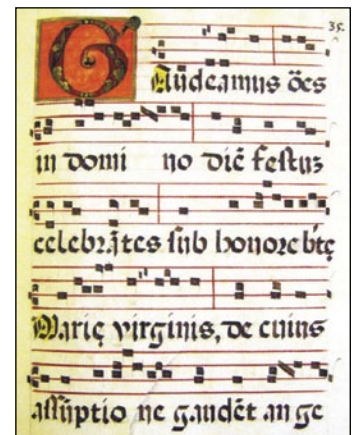 35.
Gaudeamus ões
in domi no diẽ festuz
celebrãtes sub honore btę
Marię virginis, de cuius
assũptio ne gaudẽt an ge